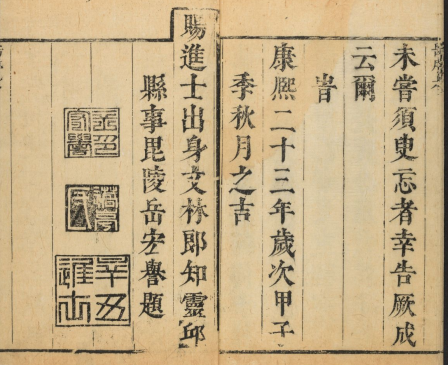 未嘗須臾忘者幸告厥成
云爾
旹
康熈二十三年歲次甲子
季秋月之吉
賜進士出身文林郎知靈邱
縣事毘陵岳宏譽題
岳宏譽印
辛丑進士